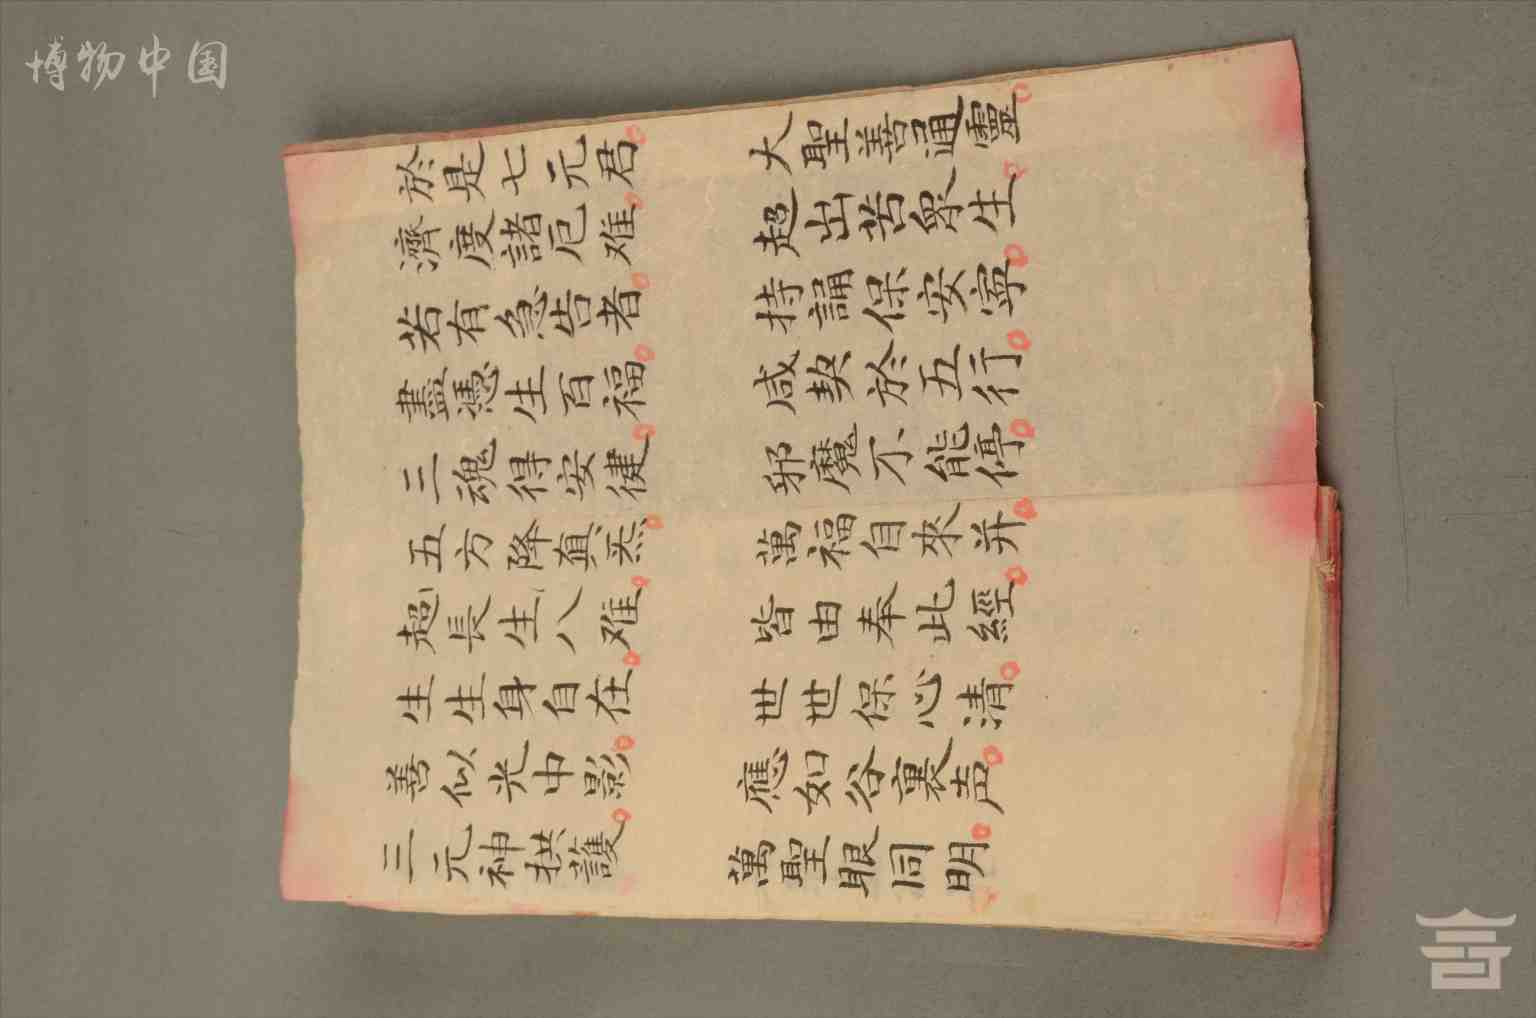 博物中国
於是七元君。大聖善通靈。
濟度諸厄难。超出苦衆生。
若有急告者。持誦保安寧。
盡憑生百福。咸契於五行。
三魂得安徤。邪魔不能停。
五方降真炁。萬福自來并。
超長生八难。皆由奉此經。
生生身自在。世世保心清。
善似光中影。應如谷裏声。
三元神拱護。萬聖眼同明。